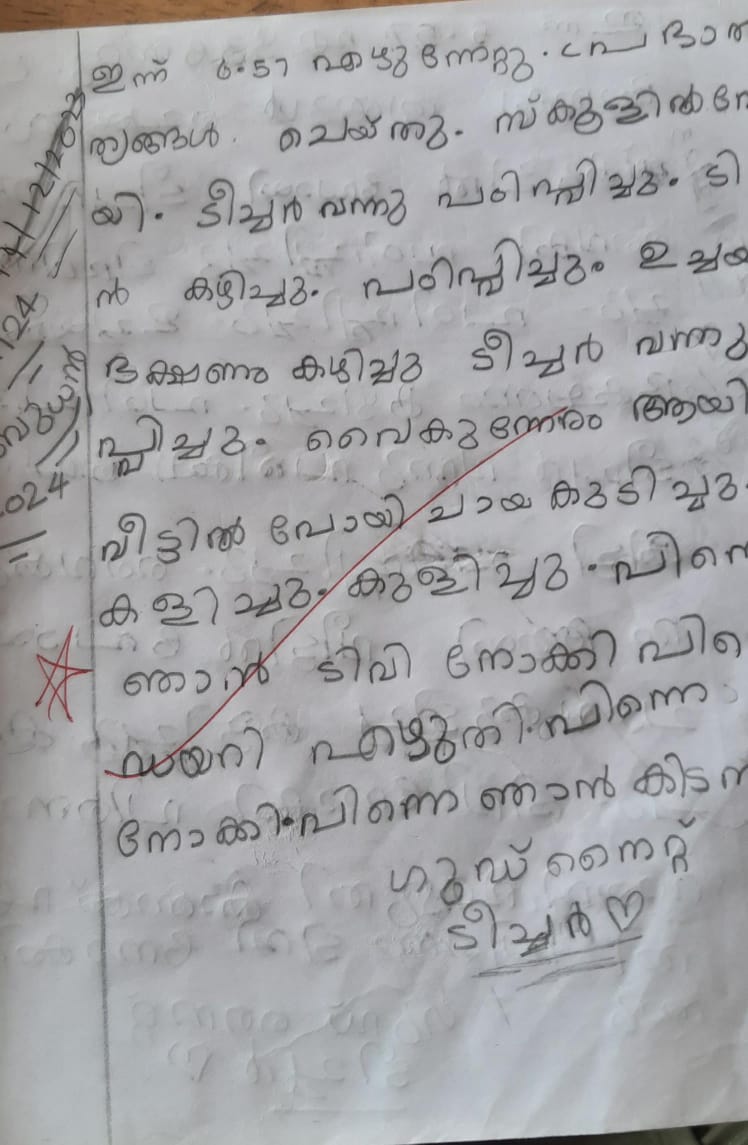 ഇന്ന് 6.57 എഴുന്നേറ്റു. പ്രഭാത
ത്യങ്ങൾ. ചെയ്തു. സ്കൂളിൽ
യി. ടീച്ചർ വന്നു പഠിപ്പിച്ചു. ടി
ൻ കഴിച്ചു. പഠിപ്പിച്ചു. ഉച്ചയ
ഭക്ഷണം കഴിച്ചു ടീച്ചർ വന്നു
പ്പിച്ചു. വൈകുന്നേരം ആയി
വീട്ടിൽ പോയി ചായ കുടിച്ചു.
കളിച്ചു. കുളിച്ചു. പിന്നെ
ഞാൻ ടിവി നോക്കി പി
ഡയറി എഴുതി. പിന്നെ
നോക്കി. പിന്നെ ഞാൻ കിടന
ഗുഡ് നൈറ്റ്
ടീച്ചർ ♡
12/202
124
ബുധൻ
024